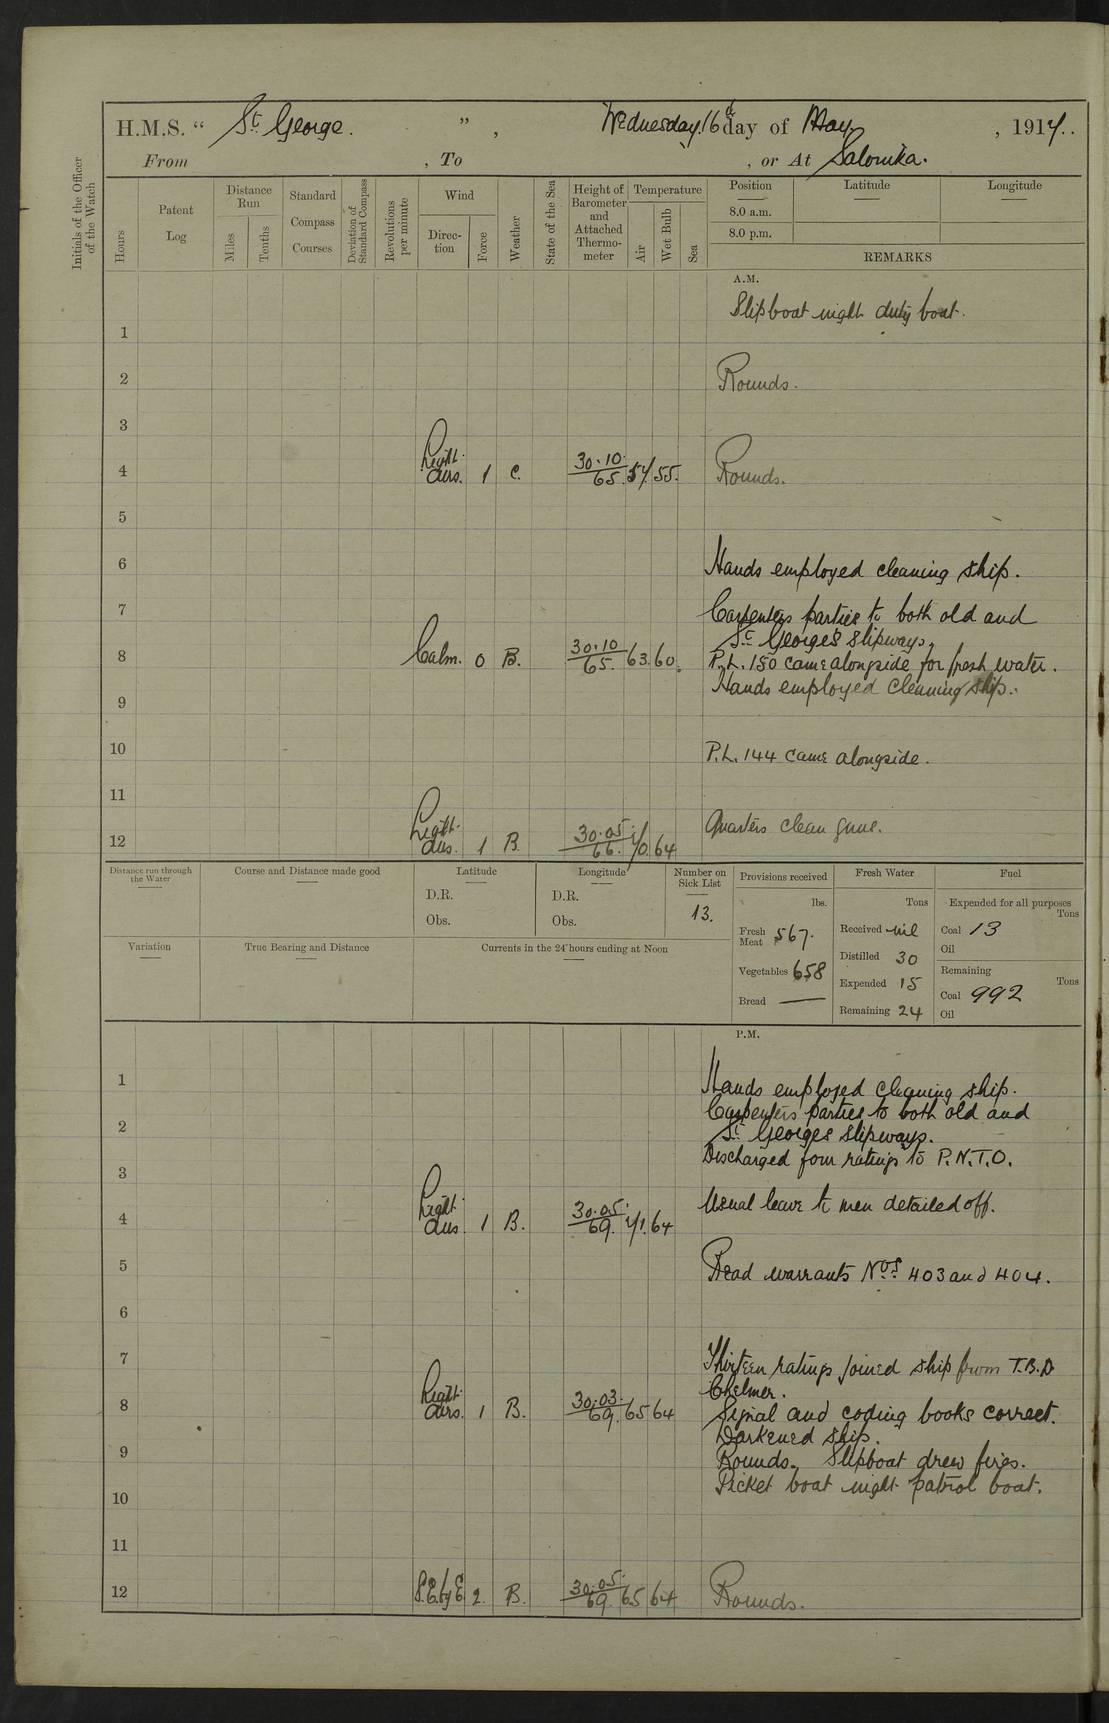 H.M.S. " St. George. ", Wednesday. 16th day of May, , 1917.
From , To , or At Salonika.
Initials of the Officer of the Watch
Hours
Patent Log
Distance Run
Miles
Tenths
Standard Compass Courses
Deviation of Standard Compass
Revolutions per minute
Wind
Direction
Force
Weather
State of the Sea
Height of Barometer and Attached Thermometer
Temperature
Air
Wet Bulb
Sea
Position Latitude Longitude
8.0 a.m.
8.0 p.m.
REMARKS
A.M.
Slipboat night duty boat.
1
2 Rounds.
3
4 Light airs. 1 C. 30.10 65. 57. 55. Rounds.
5
6 Hands employed cleaning ship.
7 Carpenters parties to both old and
St. George's Slipways.
8 Calm. 0 B. 30.10 65. 63. 60. P.L. 150 came alongside for fresh water.
Hands employed cleaning ship.
9
10 P.L. 144 came alongside.
11
12 Light airs. 1 B. 30.05 66. 70. 64 Quarters clean guns.
Distance run through the Water
Course and Distance made good
Latitude
D.R.
Obs.
Longitude
D.R.
Obs.
Number on Sick List
13.
Provisions received
lbs.
Fresh Meat 567.
Vegetables 658
Bread —
Fresh Water
Tons
Received nil
Distilled 30
Expended 15
Remaining 24
Fuel
Expended for all purposes
Tons
Coal 13
Oil
Remaining
Tons
Coal 992
Oil
Variation
True Bearing and Distance
Currents in the 24 hours ending at Noon
P.M.
1 Hands employed cleaning ship.
Carpenters parties to both old and
2 St. Georges Slipways.
Discharged four ratings to P.N.T.O.
3
4 Light airs 1 B. 30.05 69. 71. 64 Usual leave to men detailed off.
5 Read warrants Nos. 403 and 404.
6
7 Thirteen ratings joined ship from T.B.D
Chelmer.
8 Light airs. 1 B. 30.03. 69. 65 64 Signal and coding books correct.
Darkened ship.
9 Rounds. Slipboat drew fires.
Picket boat night patrol boat.
10
11
12 S.E. by E 2. B. 30.05. 69. 65 64 Rounds.